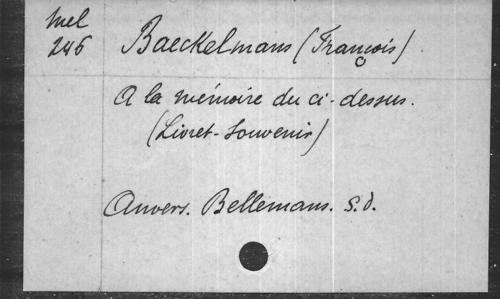 Mel
246
Baeckelmans (François).
A la mémoire du ci-dessus.
(Livret-Souvenir)
Anvers. Bellemans. S.d.